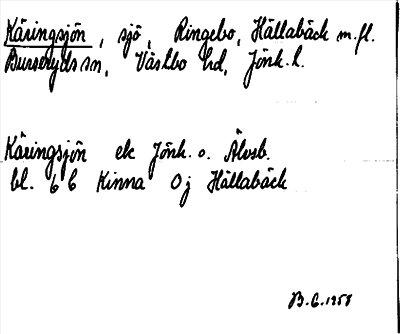 Käringsjön, sjö, Ringebo, Hällabäck m.fl.
Burseryds sn, Västbo hd, Jönk. l.
Käringsjön ek Jönk. o. Älvsb.
bl. 6 C Kinna 0 j Hällabäck
B.C. 1958